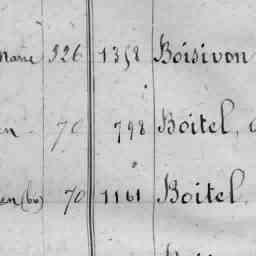 Marie 326 1358 Boisivon
en 70 798 Boitel,
en (bis) 70 1161 Boitel,